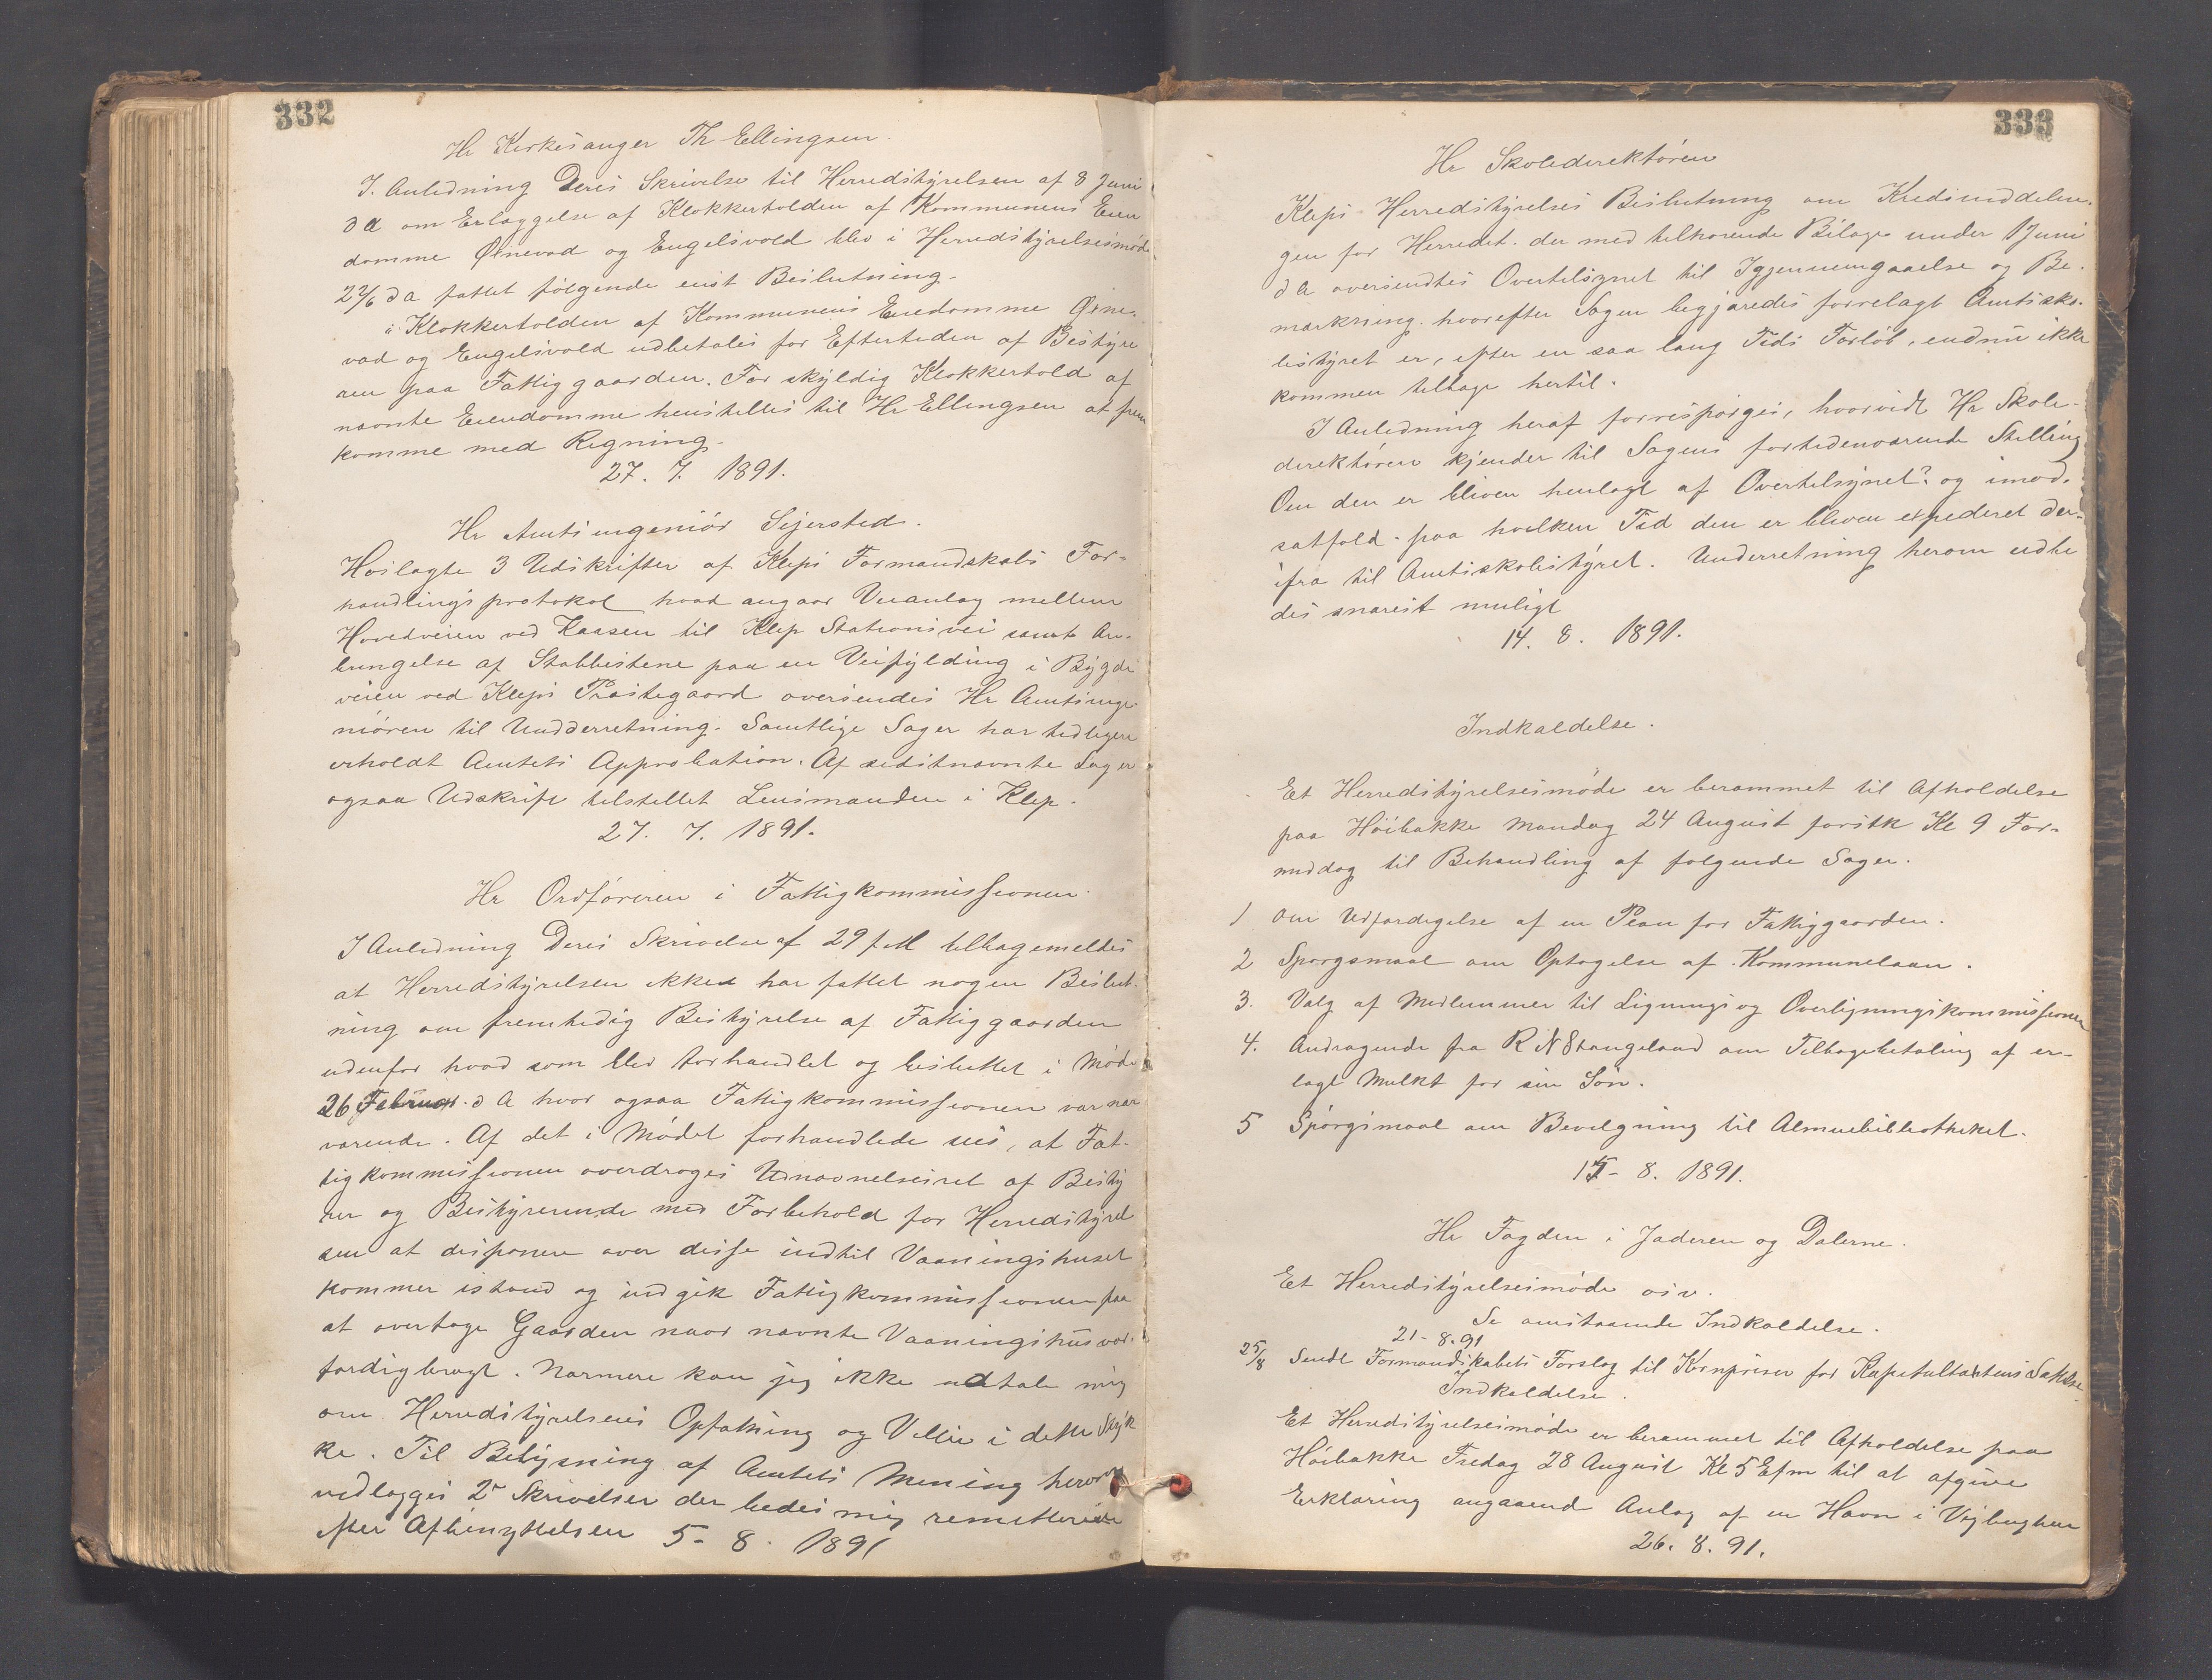 332
Hr Kirkesanger Th Ellingsen.
I. Anledning Deres Skrivelse til Herredstyrelsen af 8 Juni
d A om Erlæggelse af Klokkertolden af Kommunens Eien
domme Ørnevad og Engelsvold blev i Herredstyrelsesmøde
22/6 d A fattet følgende enst Beslutning.
"Klokkertolden af Kommunens Eiedomme Ørne-
vad og Engelsvold udbetales for Eftertiden af Bestyre
ren paa Fattiggaarden. For skyldig Klokkertold af
nævnte Eiendomme henstilles til Hr Ellingsen at frem
komme med Regning.
27. 7. 1891.
Hr Amtsingeniør Sejersted.
Hoslagte 3 Udskrifter af Kleps Formandskabs For-
handlingsprotokol hvad angaar Veianlæg mellem
Hovedveien ved Kaasen til Klep Stationsvei samt An-
bringelse af Stabbestene paa en Veifylding i Bygde
veien ved Kleps Præstegaard oversendes Hr Amtsinge
niøren til Undderretning. Samtlige Sager har tidligere
erholdt Amtets Approbation. Af sidstnævnte Sag er
ogsaa Udskrift tilstillet Lensmanden i Klep.
27. 7. 1891.
Hr Ordføreren i Fattigkommissionen.
I Anledning Deres Skrivelse af 29 f M tilbagemeldes
at Herredstyrelsen ikke har fattet nogen Beslut-
ning om fremtidig Bestyrelse af Fattiggaarden
udenfor hvad som blev forhandlet og besluttet i Møde
26 Februar d A hvor ogsaa Fattigkommissionen var nær
værende. Af det i Mødet forhandlede sees, at Fat-
tigkommissionen overdroges Udnævnelsesret af Besty
rer og Bestyrerinde med Forbehold for Herredstyrel
sen at disponere over disse indtil Vaaningshuset
kommer istand og indgik Fattigkommissionen paa
at overtage Gaarden naar nævnte Vaaningshus var
færdigbragt. Nærmere kan jeg ikke udtale mig
om Herredstyrelsens Opfatning og Villie i dette Styk
ke. Til Belysning af Amtets Mening herom
vedlægges 2 Skrivelser der bedes mig remitterede
efter Afbenyttelsen 5- 8. 1891
333
Hr Skoledirektøren
Kleps Herredstyrelses Beslutning om Kredsinddelin-
gen for Herredet. der med tilhørende Bilage under 1 Juni
d A oversendtes Overtilsynet til Igjennemgaaelse og Be-
mærkning. hvorefter Sagen begjæredes forrelagt Amtssko-
lestyret er, efter en saa lang Tids Forløb, endnu ikke
kommen tilbage hertil.
I Anledning heraf forrespørges, hvorvidt Hr Skole-
direktøren kjender til Sagens fortidenværende Stelling
Om den er bleven henlagt af Overtilsynet? og imod-
satfald- paa hvilken Tid den er bleven expederet der-
ifra til Amtsskolestyret. Underretning herom udbe
des snarest muligt
14. 8. 1891.
Indkaldelse.
Et Herredstyrelsesmøde er berammet til Afholdelse
paa Höibakke Mandag 24 August førstk Kl 9 For-
middag til Behandling af følgende Sager.
1 Om Udfærdigelse af en Plan for Fattiggaarden.
2 Spørgsmaal om Optagelse af Kommunelaan.
3. Valg af Medlemmer til Lignings og Overligningskommissionen
4. Andragende fra R N Stangeland om Tilbagebetaling af er-
lagt Mulkt for sin Søn.
5 Spørgsmaal om Bevilgning til Almuebibliotheket.
15- 8. 1891.
Hr Fogden i Jæderen og Dalerne.
Et Herredstyrelsesmøde osv.
Se omstaaende Indkaldelse.
21- 8. 91
25/8 Sendt Formandskabets Forslag til Kornpriser for Kapiteltakstens Sættelse.
Indkaldelse.
Et Herredstyrelsesmøde er berammet til Afholdelse paa
Höibakke Fredag 28 August Kl 5 Efm til at afgive
Erklæring angaaend Anlæg af en Havn i
26. 8. 91.